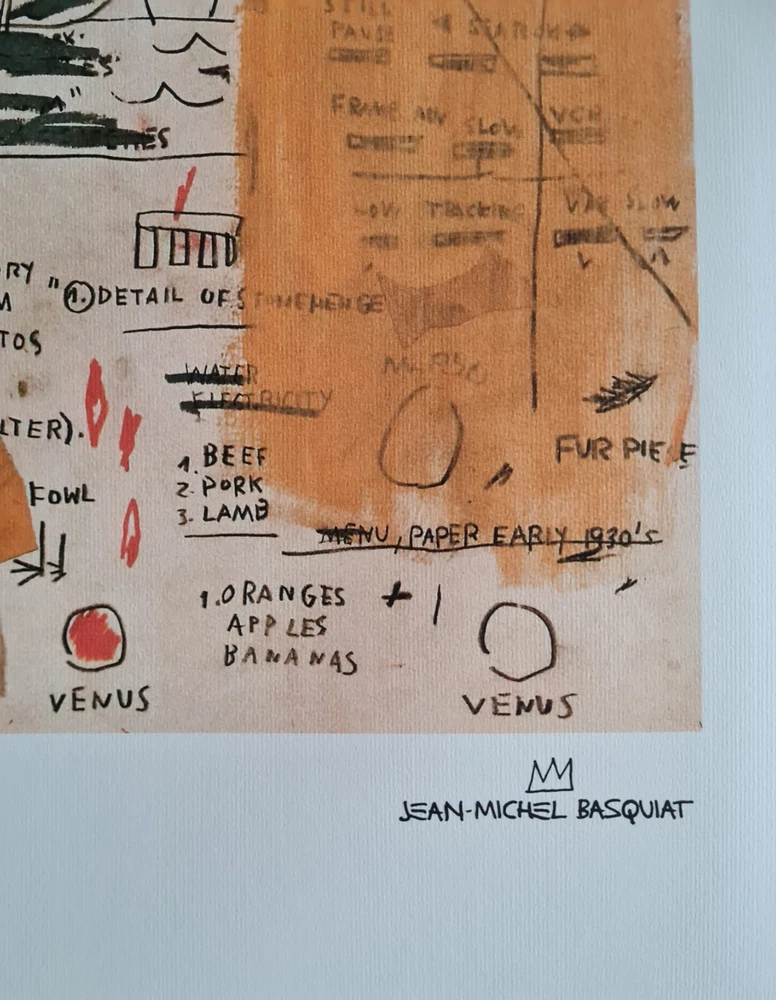 STILL
PAUSE
◄ SEARCH ►
FRAME ADV SLOW VCR
ES
LOW TRACKING
SLOW
RY
"①. DETAIL OF STONEHENGE
TOS
WATER
ELECTRICITY
LTER).
FUR PIECE
1. BEEF
2. PORK
3. LAMB
FOWL
MENU, PAPER EARLY 1930'S
1. ORANGES + |
APPLES
BANANAS
VENUS
VENUS
JEAN-MICHEL BASQUIAT